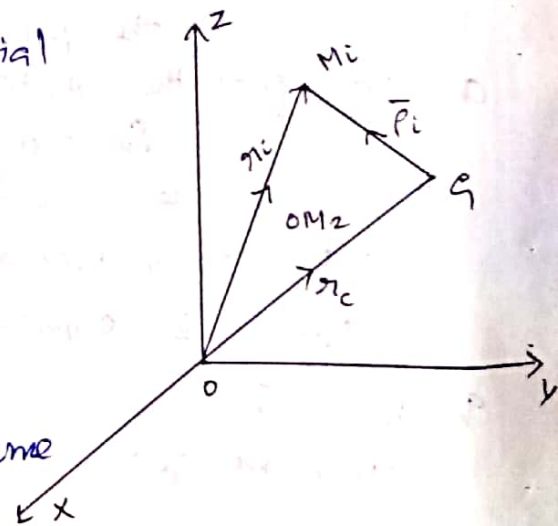 ial
Z
Mi
ρ̄i
ri
G
OM2
rc
O
y
me
X